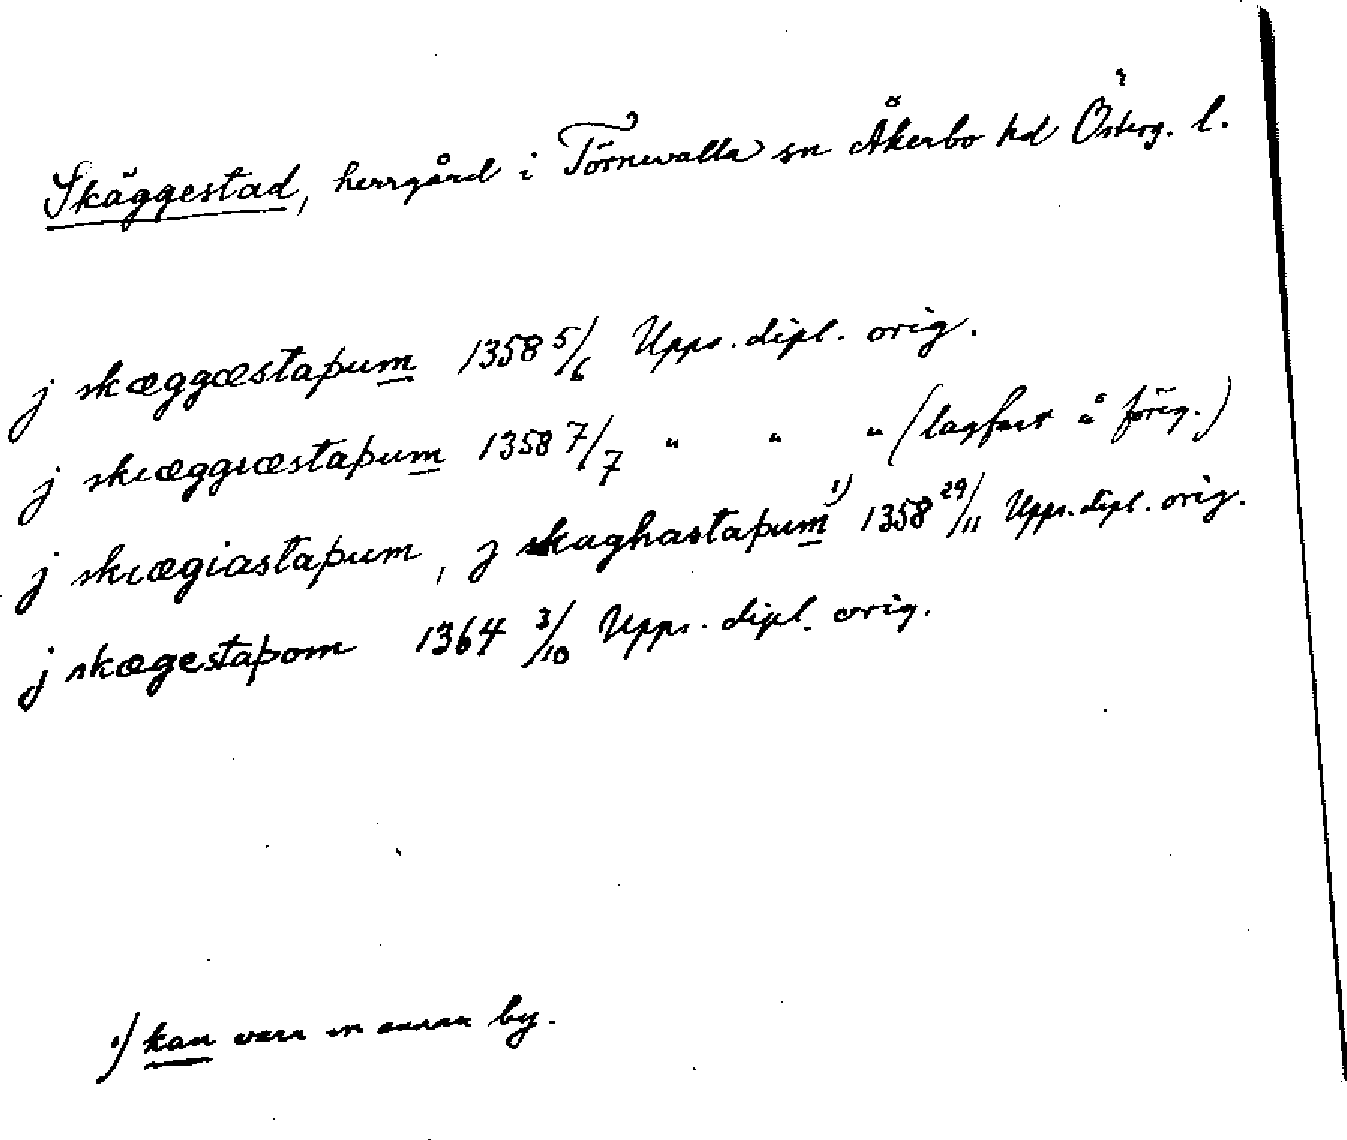 Skäggestad, herrgård i Törnevalla sn Åkerbo hd Österg. l.
j skæggæstaþum 1358 5/6 Upps. dipl. orig.
j skiæggiæstaþum 1358 7/7 " " " (lagfart å förig.)
j skiægiastaþum, j skaghastaþum ¹) 1358 29/11 Upps. dipl. orig.
j skægestaþom 1364 3/10 Upps. dipl. orig.
¹) kan vara en annan by.